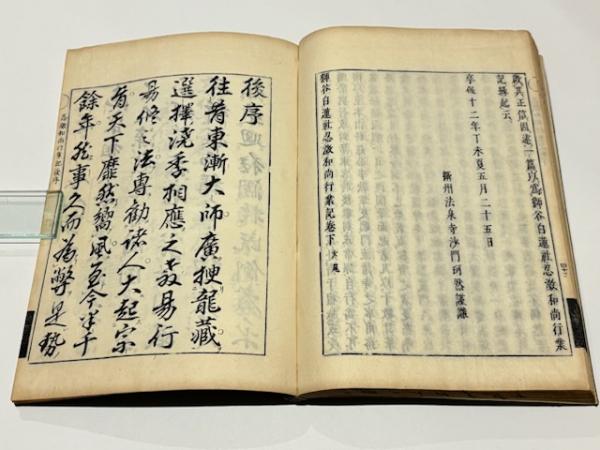 其正因述一篇以為獅谷白蓮社忍澂和尚行業
記緣起云
享保十二年丁未夏五月二十五日
攝州法泉寺沙門珂然謹
獅谷白蓮社忍澂和尚行業記卷下 大尾
後序
往昔東漸大師廣搜龍藏
選擇澆季相應之教易行
易修之法專勸諸人大起宗
旨天下靡然嚮風至今半千
餘年於事久而為弊是勢
忍澂和尚行業記後序